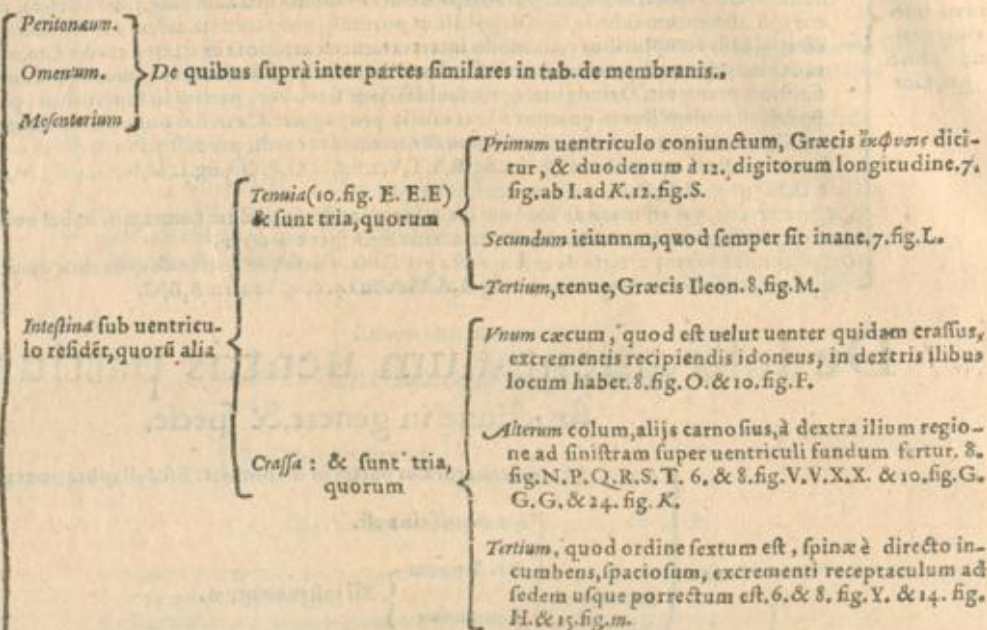 Peritonæum.
Omentum.
Mesenterium
De quibus suprà inter partes similares in tab. de membranis..
Intestina sub uentricu-
lo resident, quorũ alia
Tenuia (10. fig. E. E. E)
& sunt tria, quorum
Primum uentriculo coniunctum, Græcis ἔκφυσις dici-
tur, & duodenum à 12. digitorum longitudine. 7.
fig. ab I. ad K. 12. fig. S.
Secundum ieiunnm, quod semper sit inane. 7. fig. L.
Tertium, tenue, Græcis Ileon. 8, fig. M.
Crassa: & sunt tria,
quorum
Vnum cæcum, quod est uelut uenter quidam crassus,
excrementis recipiendis idoneus, in dextris ilibus
locum habet. 8. fig. O. & 10. fig. F.
Alterum colum, alijs carnosius, à dextra ilium regio-
ne ad sinistram super uentriculi fundum fertur. 8.
fig. N. P. Q. R. S. T. 6. & 8. fig. V. V. X. X. & 10. fig. G.
G. G. & 24. fig. K.
Tertium, quod ordine sextum est, spinæ è directo in-
cumbens, spaciosum, excrementi receptaculum ad
sedem usque porrectum est. 6. & 8. fig. Y. & 14. fig.
H. & 15. fig. m.